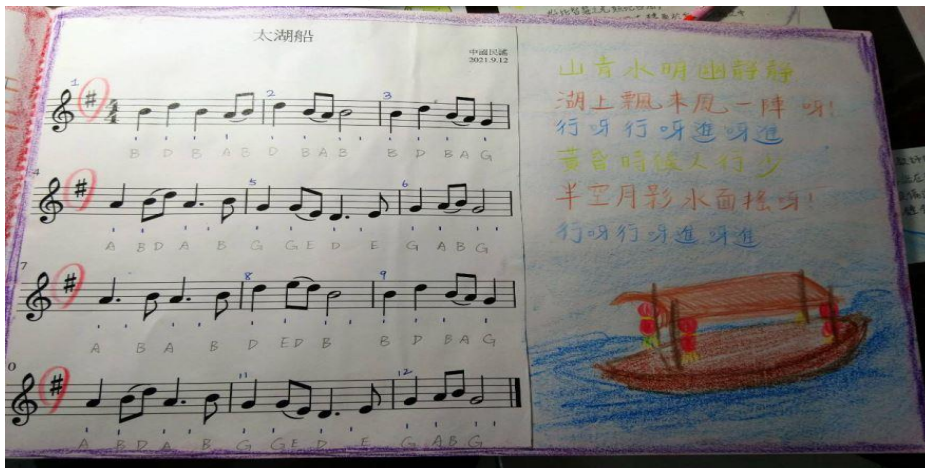 太湖船
中國民謠
2021.9.12
1 2 3
B D B A B D B A B B D B A G
4 5 6
A B D A B G G E D E G A B G
7 8 9
A B A B D E D B B D B A G
0 11 12
A B D A B G G E D E G A B G
山青水明幽靜靜
湖上飄來風一陣 呀!
行呀行呀進呀進
黃昏時候人行少
半空月影水面搖呀!
行呀行呀進呀進